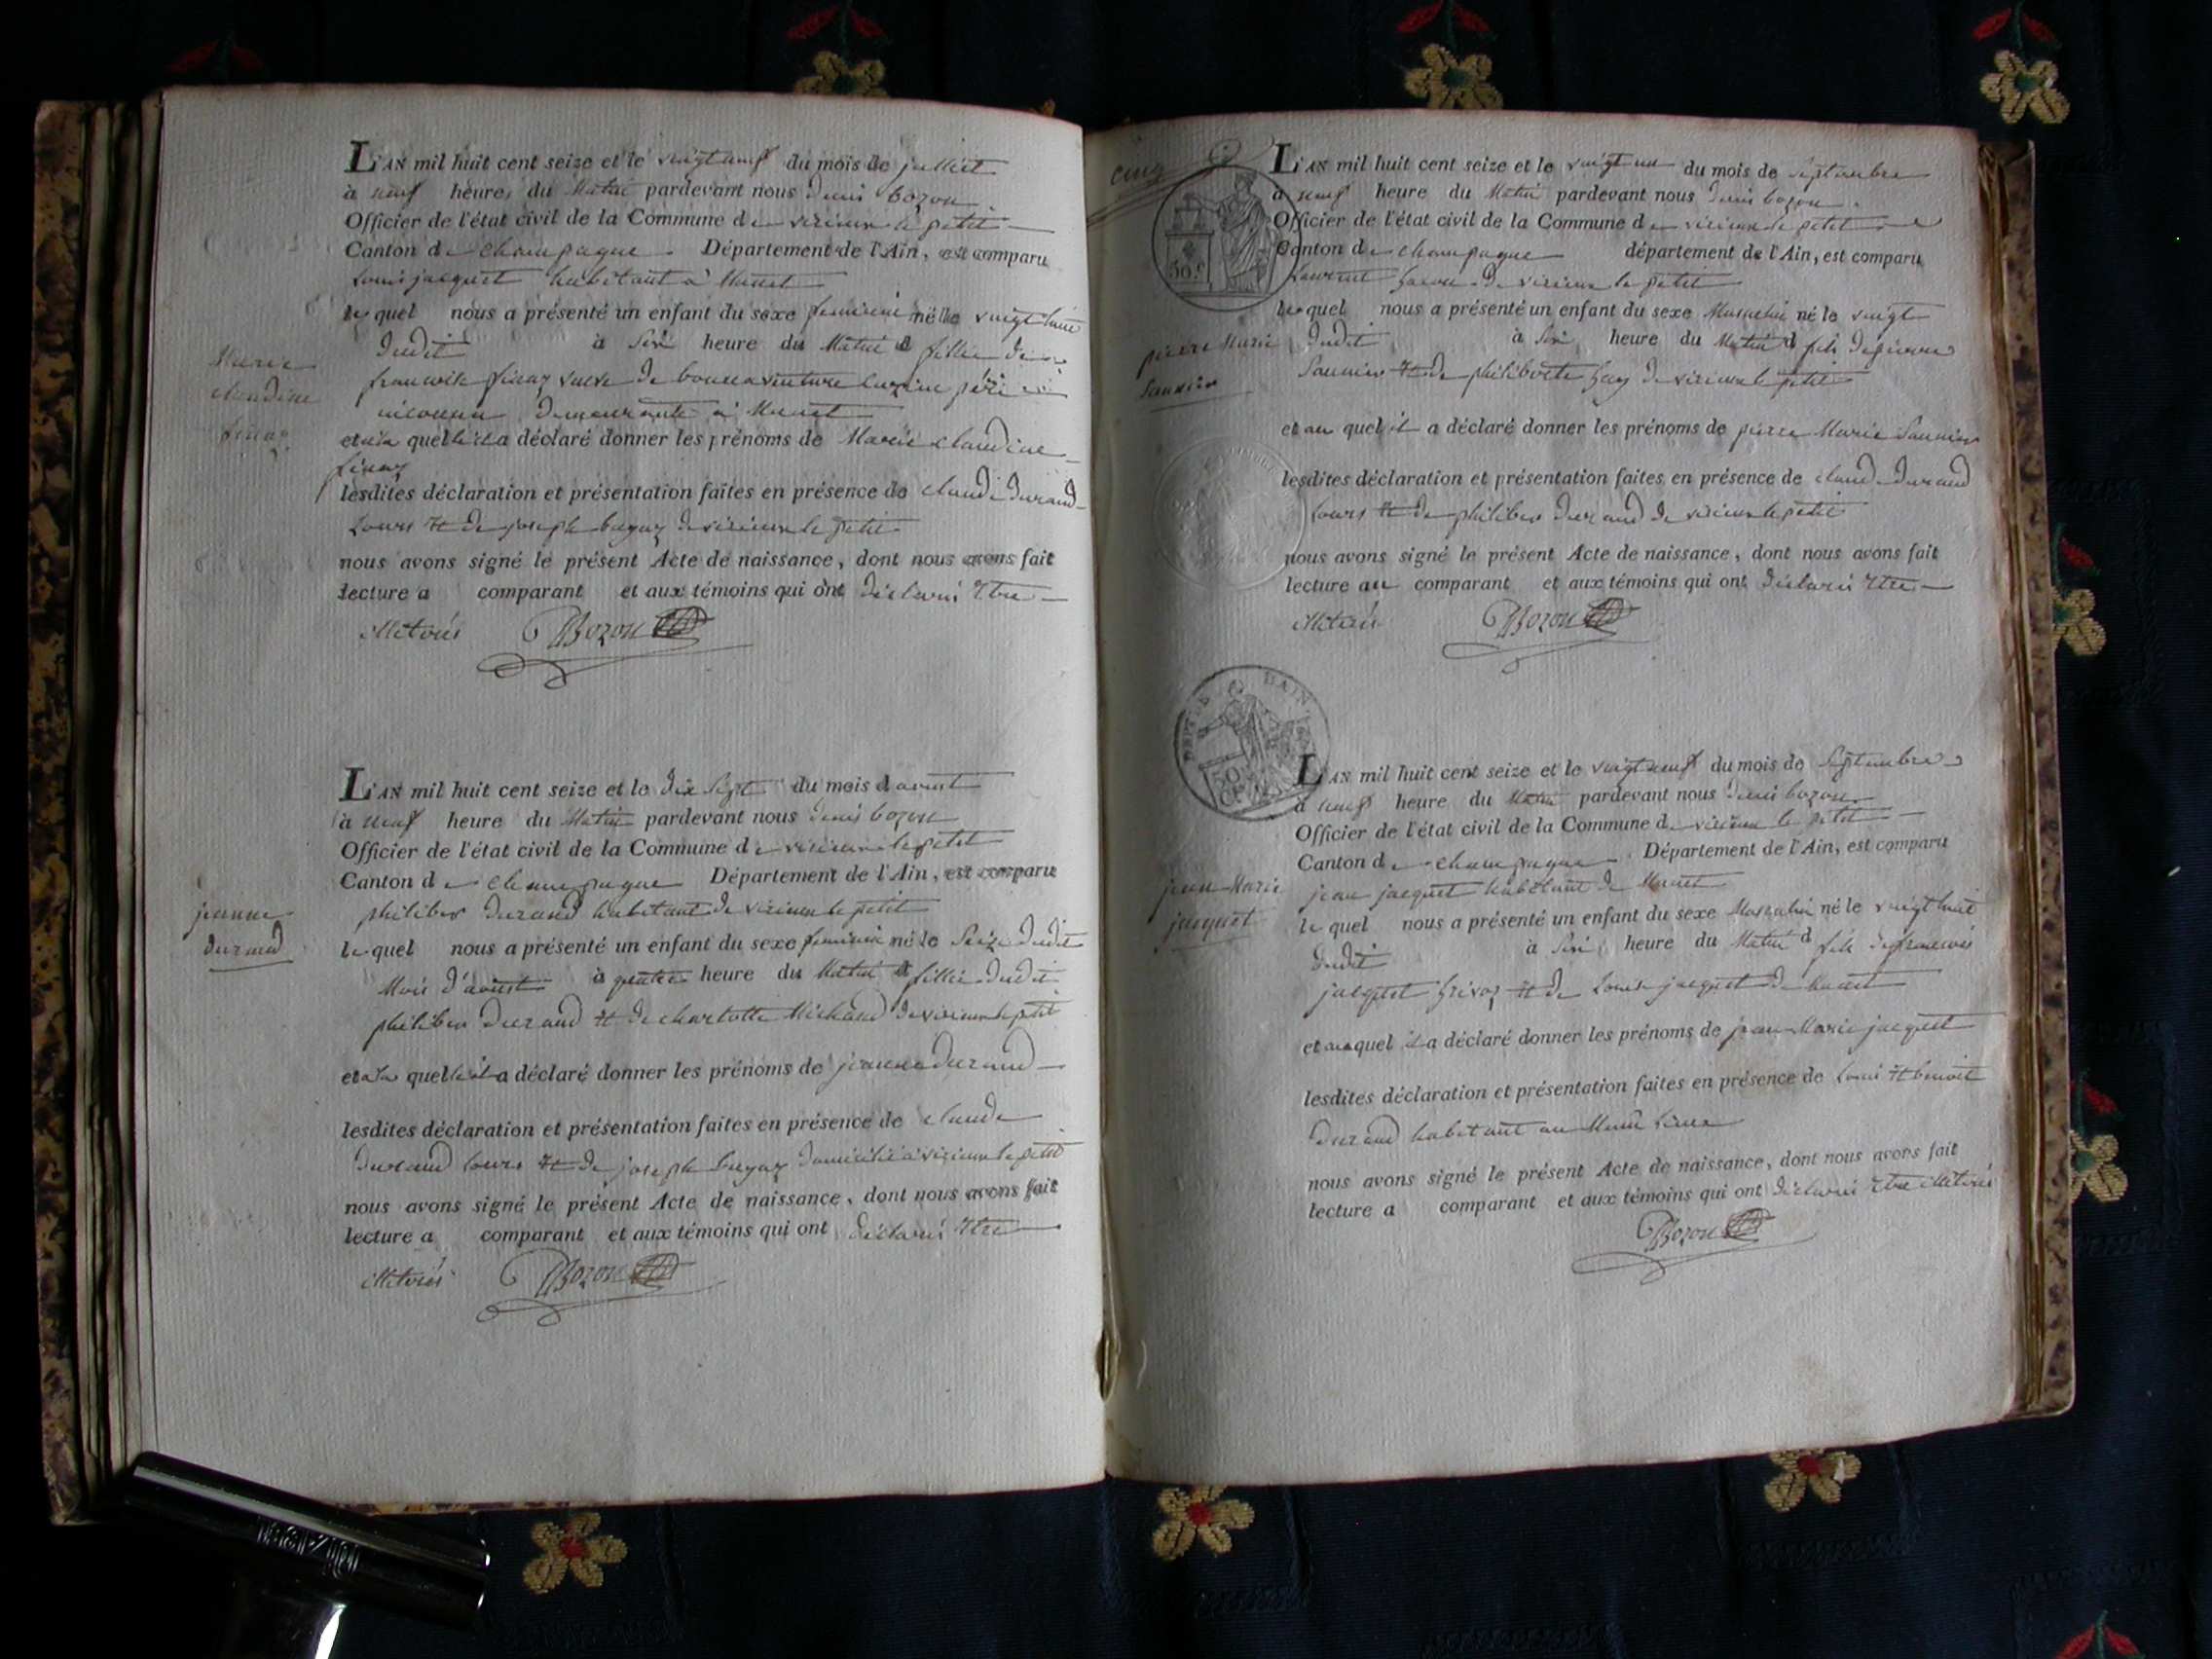 L'AN mil huit cent seize et le vingt neuf du mois de juillet
à neuf heure du Matin pardevant nous denis bozon
Officier de l'état civil de la Commune de virieux le petit
Canton de champagne Département de l'Ain, est comparu
Louis jacquet habitant à Munet
lequel nous a présenté un enfant du sexe feminin né le vingt huit
dudit à six heure du Matin fille de
francoise finaz veuve de bonnaventure père
inconnu demeurante à Munet
et a la quelle il a déclaré donner les prénoms de Marie claudine
finaz
lesdites déclaration et présentation faites en présence de claude durand
Louis et de joseph bugaz de virieux le petit
nous avons signé le présent Acte de naissance, dont nous avons fait
lecture a comparant et aux témoins qui ont déclaré être
illétérés Bozon
Marie
claudine
finaz
L'AN mil huit cent seize et le dix sept du mois d aoust
à neuf heure du Matin pardevant nous denis bozon
Officier de l'état civil de la Commune de virieux le petit
Canton de champagne Département de l'Ain, est comparu
philiber durand habitant de virieux le petit
lequel nous a présenté un enfant du sexe feminin né le Seize dudit
Mois d'aoust à quatre heure du Matin fille dudit
philiber durand et de charlotte Michaud de virieux le petit
et a la quelle il a déclaré donner les prénoms de jeanne durand
lesdites déclaration et présentation faites en présence de claude
durand Louis et de joseph bugaz domicilié à virieux le petit
nous avons signé le présent Acte de naissance, dont nous avons fait
lecture a comparant et aux témoins qui ont déclaré être
illétérés Bozon
jeanne
durand
cinq
50 c
L'AN mil huit cent seize et le vingt un du mois de Septembre
à neuf heure du Matin pardevant nous denis bozon
Officier de l'état civil de la Commune de virieux le petit
Canton de champagne département de l'Ain, est comparu
Laurent de virieux le petit
lequel nous a présenté un enfant du sexe Masculin né le vingt
dudit à six heure du Matin fils de pierre
Saunier et de philiberte de virieux le petit
et au quel il a déclaré donner les prénoms de pierre Marie Saunier
lesdites déclaration et présentation faites en présence de claude durand
Louis et de philiber durand de virieux le petit
nous avons signé le présent Acte de naissance, dont nous avons fait
lecture au comparant et aux témoins qui ont déclaré être
illétérés Bozon
pierre Marie
Saunier
50
L'AN mil huit cent seize et le vingt neuf du mois de Septembre
à neuf heure du Matin pardevant nous denis bozon
Officier de l'état civil de la Commune de virieux le petit
Canton de champagne Département de l'Ain, est comparu
jean jacquet habitant de Munet
lequel nous a présenté un enfant du sexe Masculin né le vingt huit
dudit à six heure du Matin fils de francois
jacquet et de Louise jacquet de Munet
et auquel il a déclaré donner les prénoms de jean Marie jacquet
lesdites déclaration et présentation faites en présence de Louis et benoit
durand habitant au
nous avons signé le présent Acte de naissance, dont nous avons fait
lecture a comparant et aux témoins qui ont déclaré être illétérés
Bozon
jean Marie
jacquet